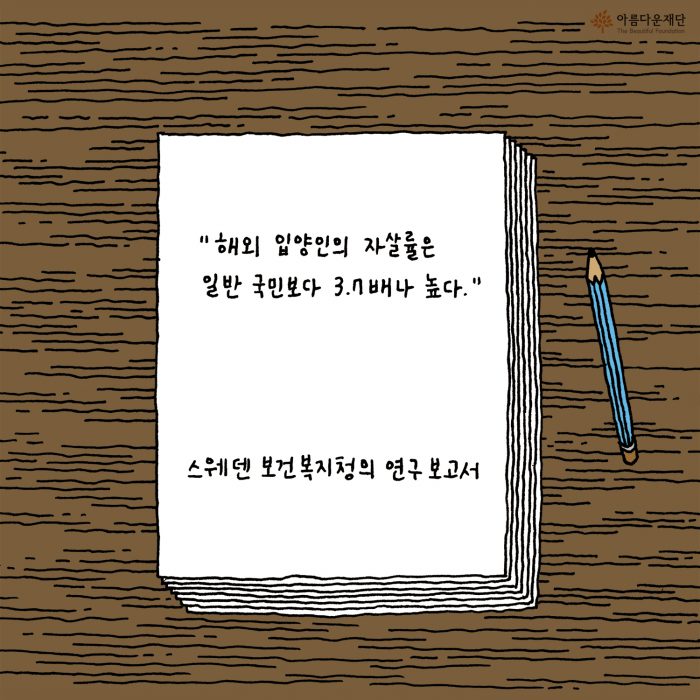 아름다운재단
The Beautiful Foundation
"해외 입양인의 자살률은
일반 국민보다 3.7배나 높다."
스웨덴 보건복지청의 연구보고서